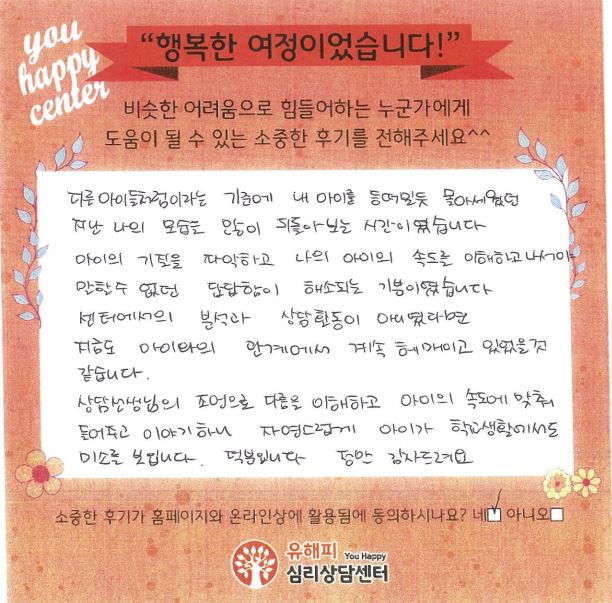 you
happy
center
“행복한 여정이었습니다!”
비슷한 어려움으로 힘들어하는 누군가에게
도움이 될 수 있는 소중한 후기를 전해주세요^^
다른아이들처럼이라는 기준에 내 아이를 등떠밀듯 몰아세웠던
지난 나의 모습도 많이 뒤돌아보는 시간이였습니다
아이의 기질을 파악하고 나의 아이의 속도를 이해하고나서이는
말할수 없던 답답함이 해소되는 기분이였습니다
센터에서의 분석과 상담활동이 아니였다면
지금도 아이와의 관계에서 계속 헤매이고 있었을것
같습니다.
상담선생님의 조언으로 다름을 이해하고 아이의 속도에 맞춰
들어주고 이야기하니 자연스럽게 아이가 학교생활에서도
미소를 보입니다. 덕분입니다 정말 감사드려요
소중한 후기가 홈페이지와 온라인상에 활용됨에 동의하시나요? 네☑ 아니오☐
유해피 You Happy
심리상담센터